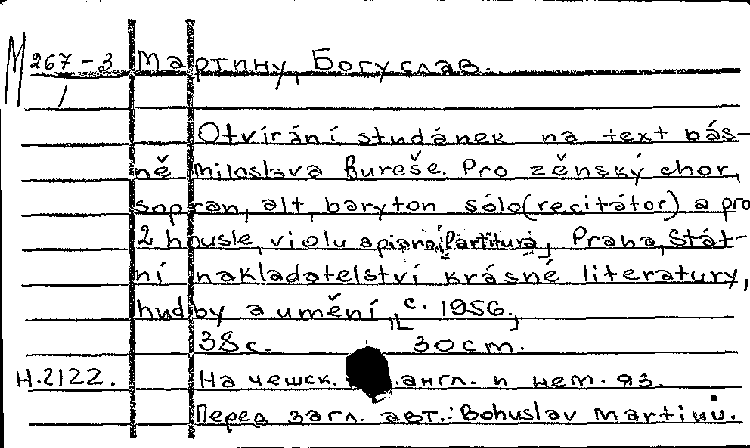 М 267-3 Мартину, Богуслав.
1
Otvírání studánek na text bás-
ně Miloslava Bureše. Pro zěnský chor,
sopran, alt, baryton sólo (recitátor) a pro
2 housle, violu a piano. Partitura, Praha, Stát-
ní nakladatelství krásné literatury,
hudby a umění, [c. 1956.]
38 с. 30 cm.
Н.2122. На чешск. англ. и нем. яз.
Перед загл. авт.: Bohuslav Martinů.